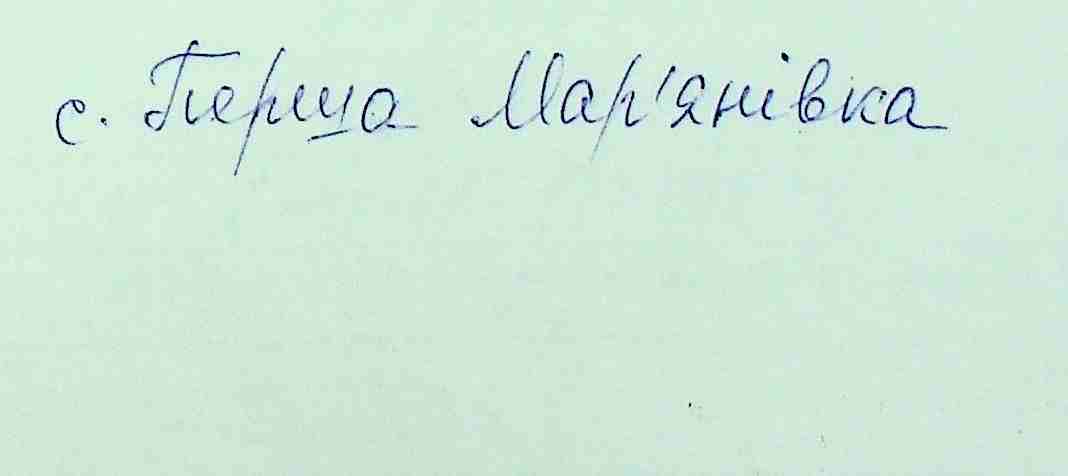 с. Перша Мар'янівка